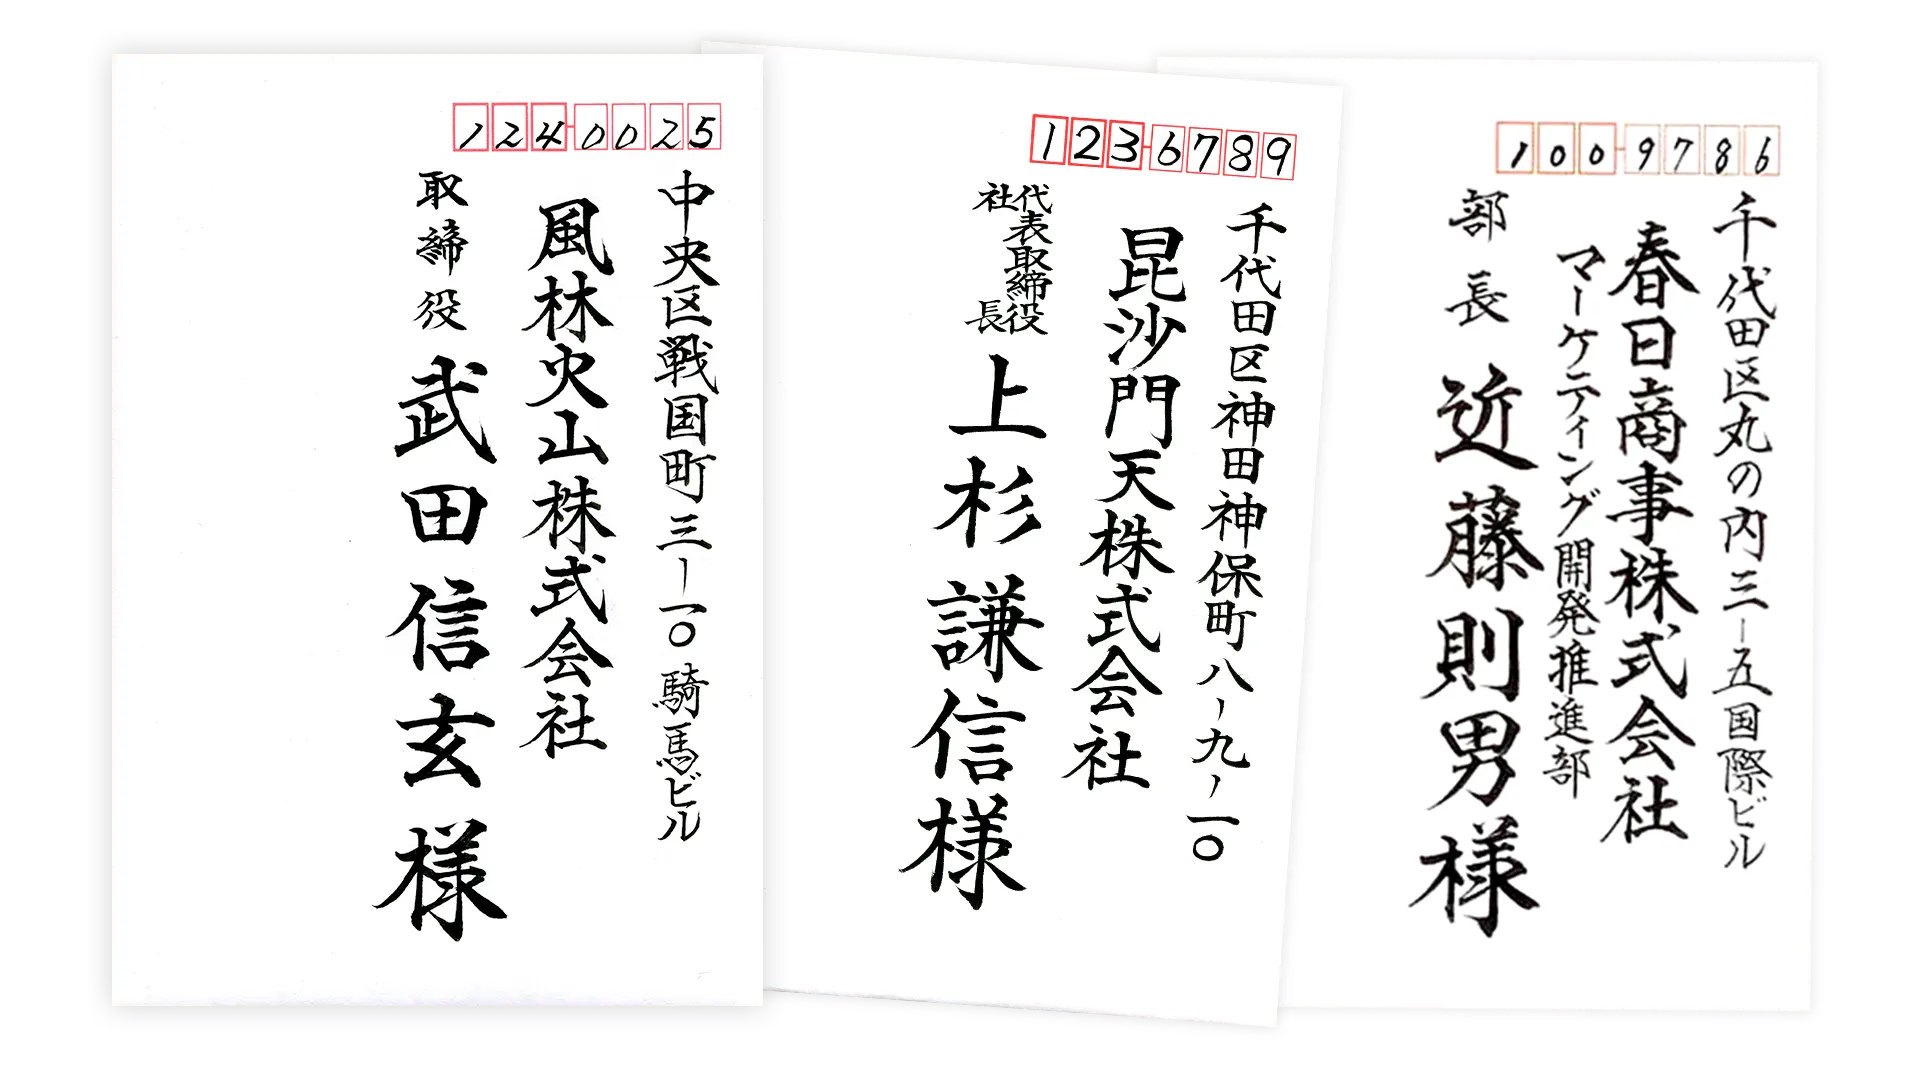 124-0025
中央区戦国町三ー一〇 騎馬ビル
風林火山株式会社
取締役 武田信玄様
123-6789
千代田区神田神保町八ー九ー一〇
昆沙門天株式会社
代表取締役
社長
上杉謙信様
100-9786
千代田区丸の内三ー五国際ビル
春日商事株式会社
マーケティング開発推進部
部長 近藤則男様